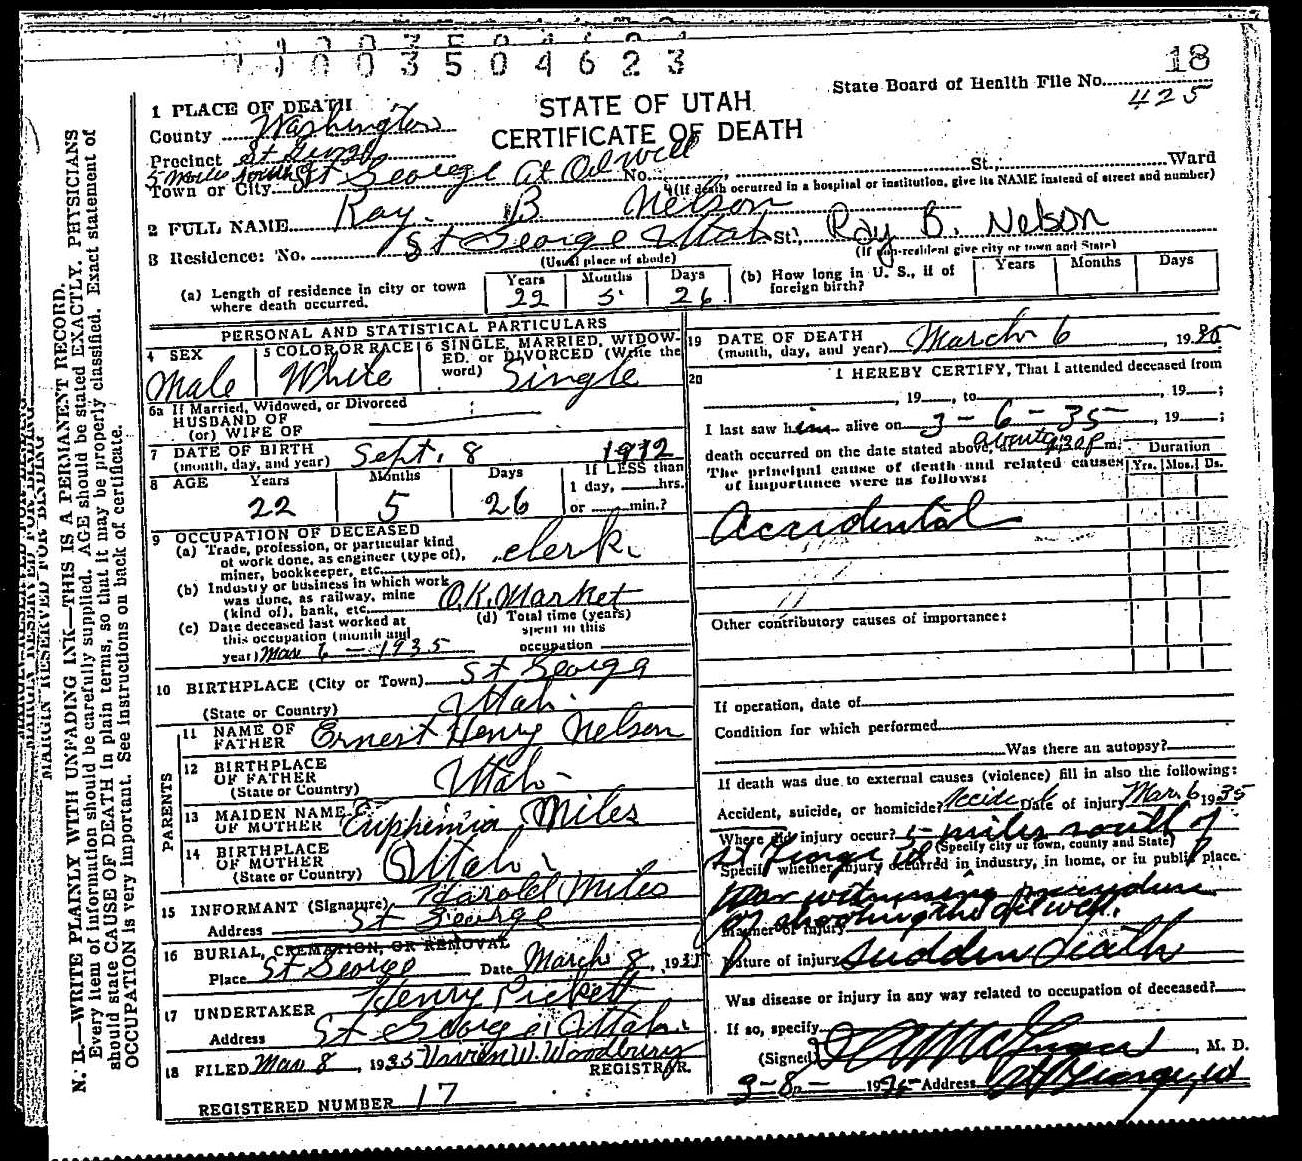 1 1 0 0 3 5 0 4 6 2 3
State Board of Health File No. 18
425
STATE OF UTAH
CERTIFICATE OF DEATH
1 PLACE OF DEATH
County Washington
Precinct St George
5 miles south
Town or City St George At Oil Well No. St. Ward
(If death occurred in a hospital or institution, give its NAME instead of street and number)
2 FULL NAME Ray. B Nelson
3 Residence: No. St George Utah St., Ray B. Nelson
(Usual place of abode) (If non-resident give city or town and State)
(a) Length of residence in city or town where death occurred. Years 22 Months 5 Days 26
(b) How long in U. S., if of foreign birth? Years Months Days
PERSONAL AND STATISTICAL PARTICULARS
4 SEX Male
5 COLOR OR RACE White
6 SINGLE, MARRIED, WIDOWED, or DIVORCED (Write the word) Single
6a If Married, Widowed, or Divorced
HUSBAND OF
(or) WIFE OF
7 DATE OF BIRTH (month, day, and year) Sept. 8 1912
8 AGE Years 22 Months 5 Days 26 If LESS than 1 day, hrs. or min.?
9 OCCUPATION OF DECEASED
(a) Trade, profession, or particular kind of work done, as engineer (type of), miner, bookkeeper, etc. clerk
(b) Industry or business in which work was done, as railway, mine (kind of), bank, etc. O.K. Market
(c) Date deceased last worked at this occupation (month and year) Mar 6 - 1935
(d) Total time (years) spent in this occupation
10 BIRTHPLACE (City or Town) St George
(State or Country) Utah
PARENTS
11 NAME OF FATHER Ernest Henry Nelson
12 BIRTHPLACE OF FATHER (State or Country) Utah
13 MAIDEN NAME OF MOTHER Euphemia Miles
14 BIRTHPLACE OF MOTHER (State or Country) Utah
15 INFORMANT (Signature) Harold Miles
Address St George
16 BURIAL, CREMATION, OR REMOVAL
Place St George Date March 8, 1935
17 UNDERTAKER Henry Pickett
Address St George, Utah
18 FILED Mar 8, 1935 Vivien W. Woodbury
REGISTRAR.
REGISTERED NUMBER 17
19 DATE OF DEATH (month, day, and year) March 6, 1935
20 I HEREBY CERTIFY, That I attended deceased from
, 19 , to , 19 ;
I last saw him alive on 3-6-35, 19 ;
death occurred on the date stated above, at about 9:30 p m.
The principal cause of death and related causes of importance were as follows:
Duration
Yrs. Mos. Ds.
Accidental
Other contributory causes of importance:
If operation, date of
Condition for which performed
Was there an autopsy?
If death was due to external causes (violence) fill in also the following:
Accident, suicide, or homicide? Accident Date of injury Mar. 6 1935
Where did injury occur? 5 miles south of
St George Ut (Specify city or town, county and State)
Specify whether injury occurred in industry, in home, or in public place.
Was witnessing
of shooting the oil well.
Manner of injury
Nature of injury sudden death
Was disease or injury in any way related to occupation of deceased?
If so, specify
(Signed) , M. D.
3-8- 1935 Address St George, Ut
MARGIN RESERVED FOR BINDING
N. B.—WRITE PLAINLY WITH UNFADING INK—THIS IS A PERMANENT RECORD.
Every item of information should be carefully supplied. AGE should be stated EXACTLY. PHYSICIANS
should state CAUSE OF DEATH in plain terms, so that it may be properly classified. Exact statement of
OCCUPATION is very important. See instructions on back of certificate.